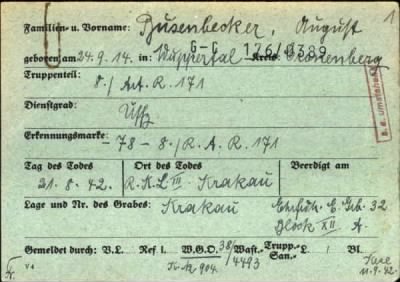 1
Familien- u. Vorname: Busenbecker, August
G-C 126/0389
geboren am 24.9.14. in: Wuppertal Kreis: Cronenberg
Truppenteil:
8./Art. R. 171
s. a. Umstehend
Dienstgrad:
Uffz
Erkennungsmarke:
-78- 8./R.A.R. 171
Tag des Todes Ort des Todes Beerdigt am
21.8.42. R.K.L III Krakau
Lage und Nr. des Grabes: Krakau Ehrfrdh. E. Grb. 32
Block XII A.
Gemeldet durch: V.L. Ref I. W.G.O. 38/4493 Wast.- Trupp.- San.- L. Bl.
V 4 904. 11.9.42.